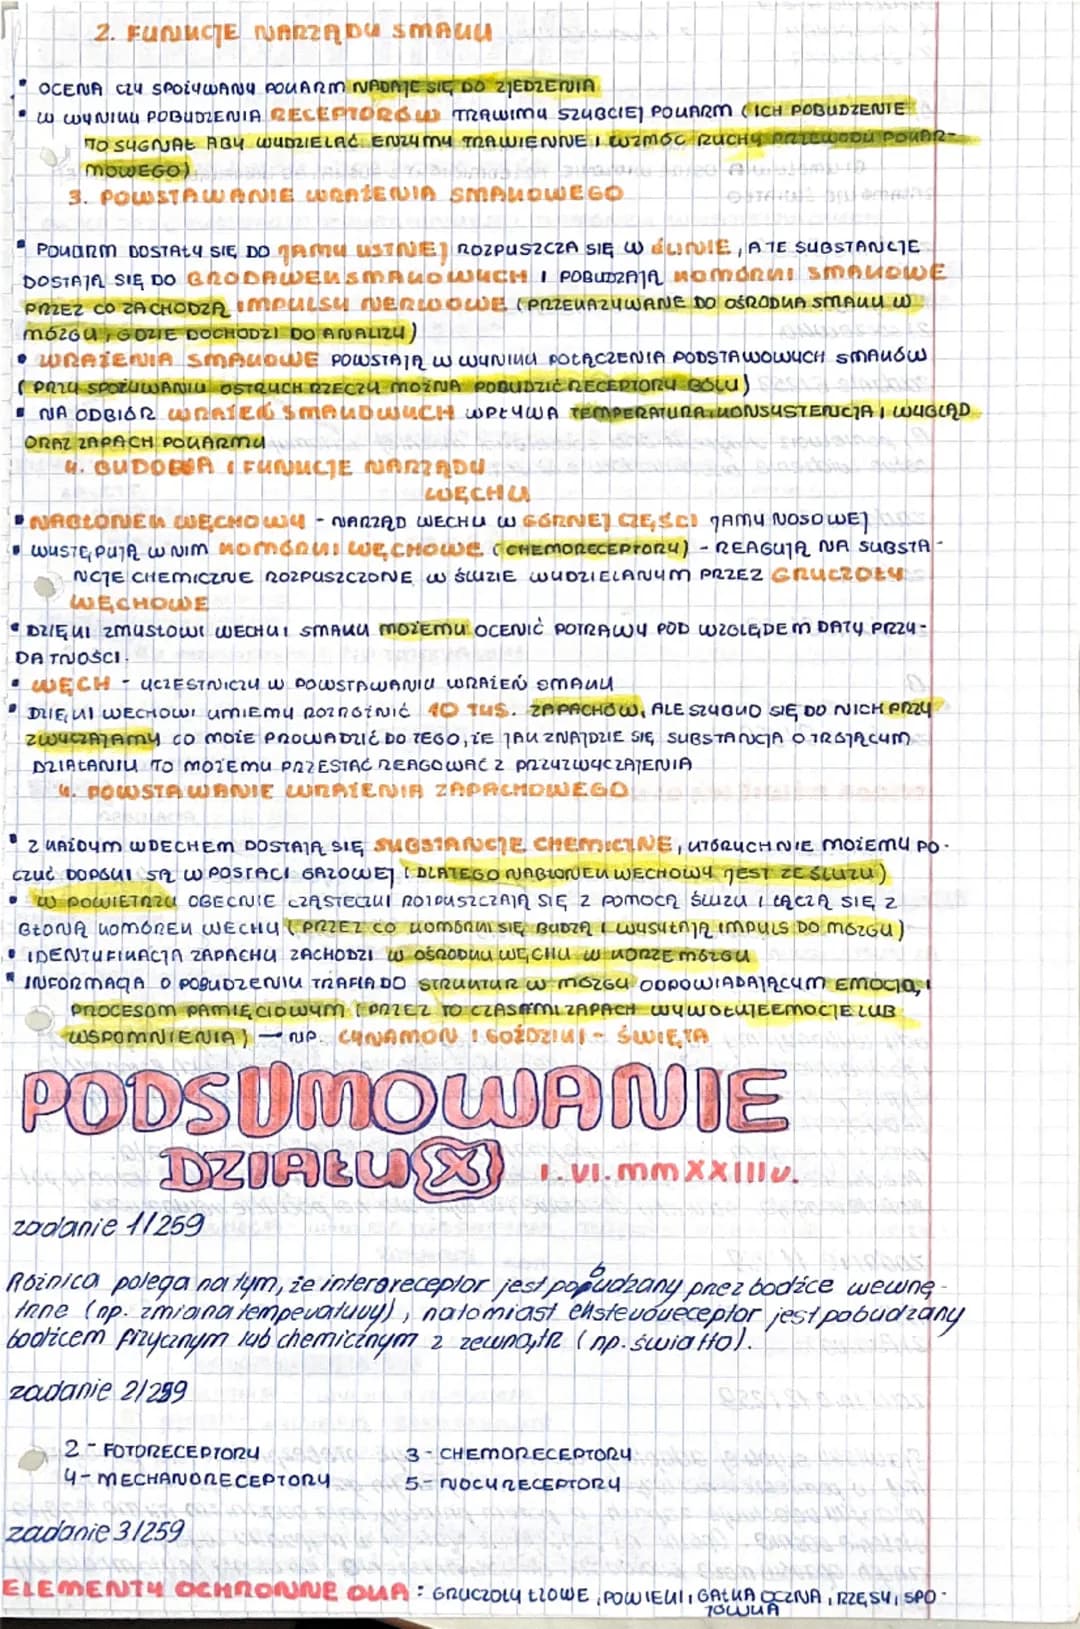 2. FUNKCJE NARZĄDU SMAKU
• OCENA CZY SPOŻYWANY POKARM NADAJE SIĘ DO ZJEDZENIA
• W WYNIKU POBUDZENIA RECEPTORÓW TRAWIMY SZYBCIEJ POKARM (ICH POBUDZENIE
TO SYGNAŁ ABY WYDZIELAĆ ENZYMY TRAWIENNE I WZMÓC RUCHY PRZEWODU POKAR-
MOWEGO)
3. POWSTAWANIE WRAŻENIA SMAKOWEGO
• POKARM DOSTAŁY SIĘ DO JAMY USTNEJ ROZPUSZCZA SIĘ W ŚLINIE, A TE SUBSTANCJE
DOSTAJĄ SIĘ DO BRODAWEK SMAKOWYCH I POBUDZAJĄ KOMÓRKI SMAKOWE
PRZEZ CO ZACHODZĄ IMPULSY NERWOWE (PRZEKAZYWANE DO OŚRODKA SMAKU W
MÓZGU, GDZIE DOCHODZI DO ANALIZY)
• WRAŻENIA SMAKOWE POWSTAJĄ W WYNIKU POŁĄCZENIA PODSTAWOWYCH SMAKÓW
(PRZY SPOŻYWANIU OSTRYCH RZECZY MOŻNA POBUDZIĆ RECEPTORY BÓLU)
• NA ODBIÓR WRAŻEŃ SMAKOWYCH WPŁYWA TEMPERATURA, KONSYSTENCJA I WYGLĄD
ORAZ ZAPACH POKARMU
4. BUDOWA I FUNKCJE NARZĄDU
WĘCHU
• NABŁONEK WĘCHOWY - NARZĄD WECHU W GÓRNEJ CZĘŚCI JAMY NOSOWEJ
• WYSTĘPUJĄ W NIM KOMÓRKI WĘCHOWE (CHEMORECEPTORY) - REAGUJĄ NA SUBSTA-
NCJE CHEMICZNE ROZPUSZCZONE W ŚLUZIE WYDZIELANYM PRZEZ GRUCZOŁY
WĘCHOWE
• DZIĘKI ZMYSŁOWI WECHU I SMAKU MOŻEMY OCENIĆ POTRAWY POD WZGLĘDEM DATY PRZY-
DATNOŚCI.
• WĘCH - UCZESTNICZY W POWSTAWANIU WRAŻEŃ SMAKU
• DZIĘKI WECHOWI UMIEMY ROZRÓŻNIĆ 10 TYS. ZAPACHÓW, ALE SZYBKO SIĘ DO NICH PRZY
ZWYCZAJAMY CO MOŻE PROWADZIĆ DO TEGO, ŻE JAK ZNAJDZIE SIĘ SUBSTANCJA O TRUJĄCYM
DZIAŁANIU TO MOŻEMY PRZESTAĆ REAGOWAĆ Z PRZYZWYCZAJENIA
4. POWSTAWANIE WRAŻENIA ZAPACHOWEGO
• Z KAŻDYM WDECHEM DOSTAJĄ SIĘ SUBSTANCJE CHEMICZNE, KTÓRYCH NIE MOŻEMY PO-
CZUĆ DOPÓKI SĄ W POSTACI GAZOWEJ (DLATEGO NABŁONEK WECHOWY JEST ZE ŚLUZU)
• W POWIETRZU OBECNIE CZĄSTECZKI ROZPUSZCZAJĄ SIĘ Z POMOCĄ ŚLUZU I ŁĄCZĄ SIĘ Z
BŁONĄ KOMÓREK WECHU (PRZEZ CO KOMÓRKI SIĘ BUDZĄ I WYSYŁAJĄ IMPULS DO MÓZGU)
• IDENTYFIKACJA ZAPACHU ZACHODZI W OŚRODKU WĘCHU W KORZE MÓZGU
• INFORMACJA O POBUDZENIU TRAFIA DO STRUKTUR W MÓZGU ODPOWIADAJĄCYM EMOCJĄ, I
PROCESOM PAMIĘCIOWYM (PRZEZ TO CZASAMI ZAPACH WYWOŁUJE EMOCJE LUB
WSPOMNIENIA) → NP. CYNAMON I GOŹDZIKI - ŚWIĘTA
PODSUMOWANIE
DZIAŁU X 1.VI.MMXXIIIV.
zadanie 1/259
Różnica polega na tym, że interoreceptor jest pobudzany przez bodźce wewnę-
trzne (np. zmiana temperatury), natomiast eksteroreceptor jest pobudzany
bodźcem fizycznym lub chemicznym z zewnątrz (np. światło).
zadanie 2/259
2 - FOTORECEPTORY 3 - CHEMORECEPTORY
4 - MECHANORECEPTORY 5 - NOCYRECEPTORY
zadanie 3/259
ELEMENTY OCHRONNE OKA: GRUCZOŁY ŁZOWE, POWIEKI, GAŁKA OCZNA, RZĘSY, SPO-
JÓWKA